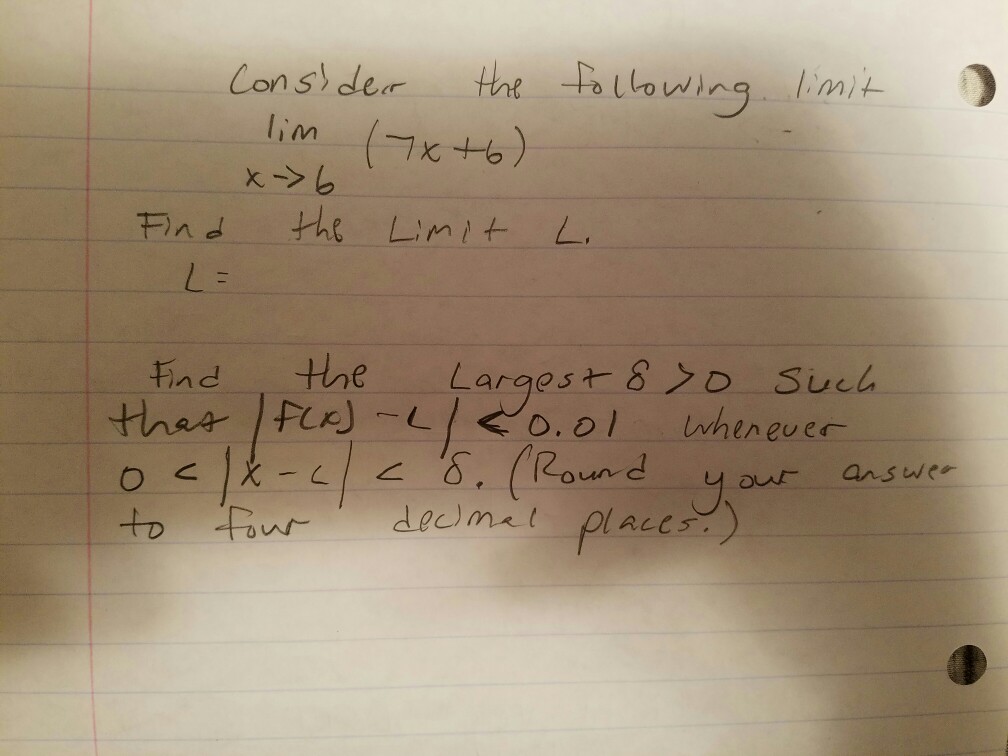 Consider the following limit
lim (7x+6)
x->6
Find the Limit L.
L =
Find the Largest δ >0 Such
that |f(x) - L| < 0.01 whenever
0 < |x - c| < δ. (Round your answer
to four decimal places.)